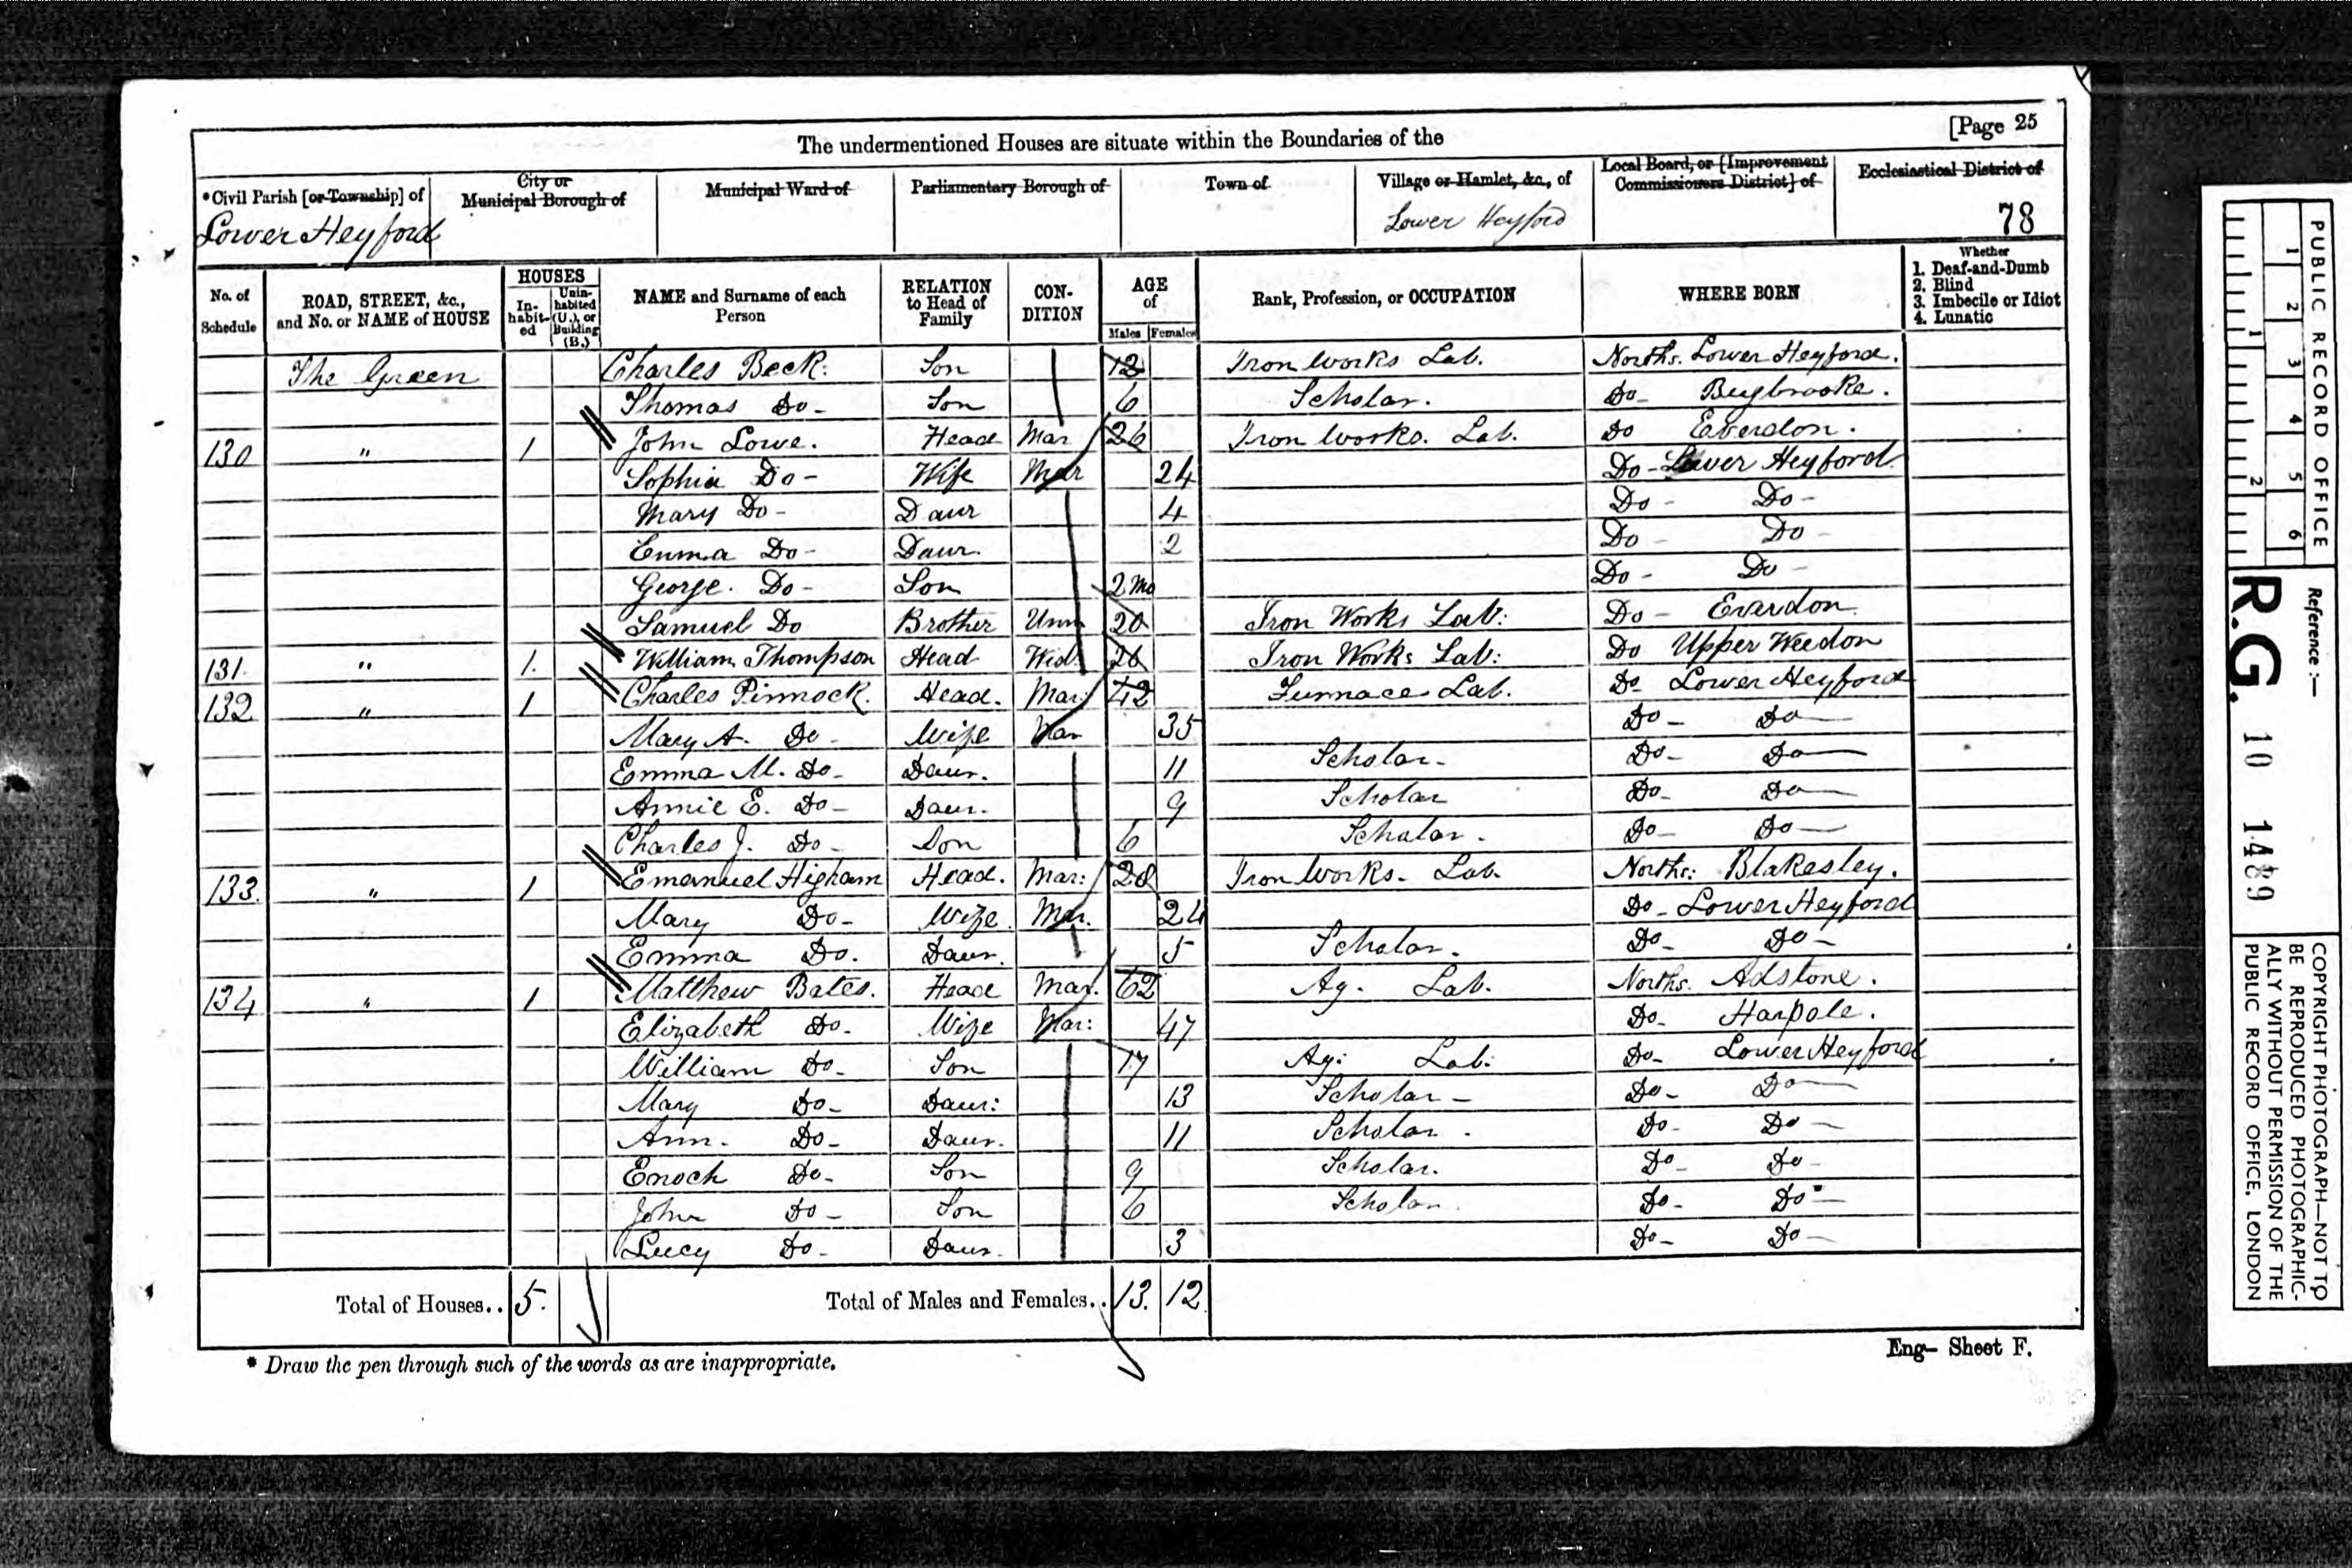 [Page 25
The undermentioned Houses are situate within the Boundaries of the
*Civil Parish [or Township] of
City or Municipal Borough of
Municipal Ward of
Parliamentary Borough of
Town of
Village or Hamlet, &c., of
Local Board, or [Improvement Commissioners District] of
Ecclesiastical District of
Lower Heyford
Lower Heyford
78
No. of Schedule
ROAD, STREET, &c., and No. or NAME of HOUSE
HOUSES
In-habit-ed
Unin-habited (U.), or Building (B.)
NAME and Surname of each Person
RELATION to Head of Family
CON-DITION
AGE of
Males Females
Rank, Profession, or OCCUPATION
WHERE BORN
Whether
1. Deaf-and-Dumb
2. Blind
3. Imbecile or Idiot
4. Lunatic
The Green Charles Beck. Son 12 Iron Works Lab. Norths. Lower Heyford.
Thomas Do- Son 6 Scholar. Do- Bugbrooke.
130 " 1 John Lowe. Head Mar 26 Iron Works. Lab. Do Everdon.
Sophia Do- Wife Mar 24 Do- Lower Heyford
Mary Do- Daur 4 Do- Do-
Emma Do- Daur. 2 Do- Do-
George. Do- Son 2 Mo Do- Do-
Samuel Do Brother Unm 20 Iron Works Lab: Do- Everdon
131 " 1. William Thompson Head Wid. 26 Iron Works Lab: Do Upper Weedon
132 " 1 Charles Pinnock. Head. Mar: 42 Furnace Lab. Do Lower Heyford
Mary A. Do- Wife Mar 35 Do- Do-
Emma M. Do- Daur. 11 Scholar- Do- Do-
Annie E. Do- Daur. 9 Scholar Do- Do-
Charles J. Do- Son 6 Scholar. Do- Do-
133. " 1 Emanuel Higham Head. Mar: 28 Iron Works. Lab. Norths: Blakesley.
Mary Do- Wife. Mar. 24 Do- Lower Heyford
Emma Do. Daur. 5 Scholar. Do- Do-
134 " 1 Matthew Bates. Head Mar. 62 Ag. Lab. Norths. Adstone.
Elizabeth Do. Wife Mar: 47 Do- Harpole.
William Do- Son 17 Ag: Lab: Do- Lower Heyford
Mary Do- Daur: 13 Scholar- Do- Do-
Ann. Do- Daur. 11 Scholar. Do- Do-
Enoch Do- Son 9 Scholar. Do- Do-
John Do- Son 6 Scholar. Do- Do-
Lucy Do- Daur. 3 Do- Do-
Total of Houses.. 5. Total of Males and Females.. 13. 12
* Draw the pen through such of the words as are inappropriate.
Eng- Sheet F.
PUBLIC RECORD OFFICE
1 2 3 4 5 6
1 2
Reference :-
R.G. 10 1489
COPYRIGHT PHOTOGRAPH-NOT TO
BE REPRODUCED PHOTOGRAPHIC-
ALLY WITHOUT PERMISSION OF THE
PUBLIC RECORD OFFICE, LONDON